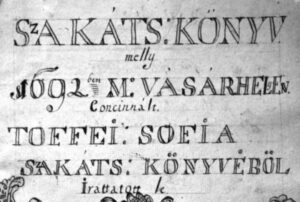 SZAKÁTS: KÖNYV
melly
1692ben M: VÁSÁRHELEN.
Concinnált.
TOFFEI: SOFIA
SZAKÁTS: KÖNYVÉBÖL
irattatott le